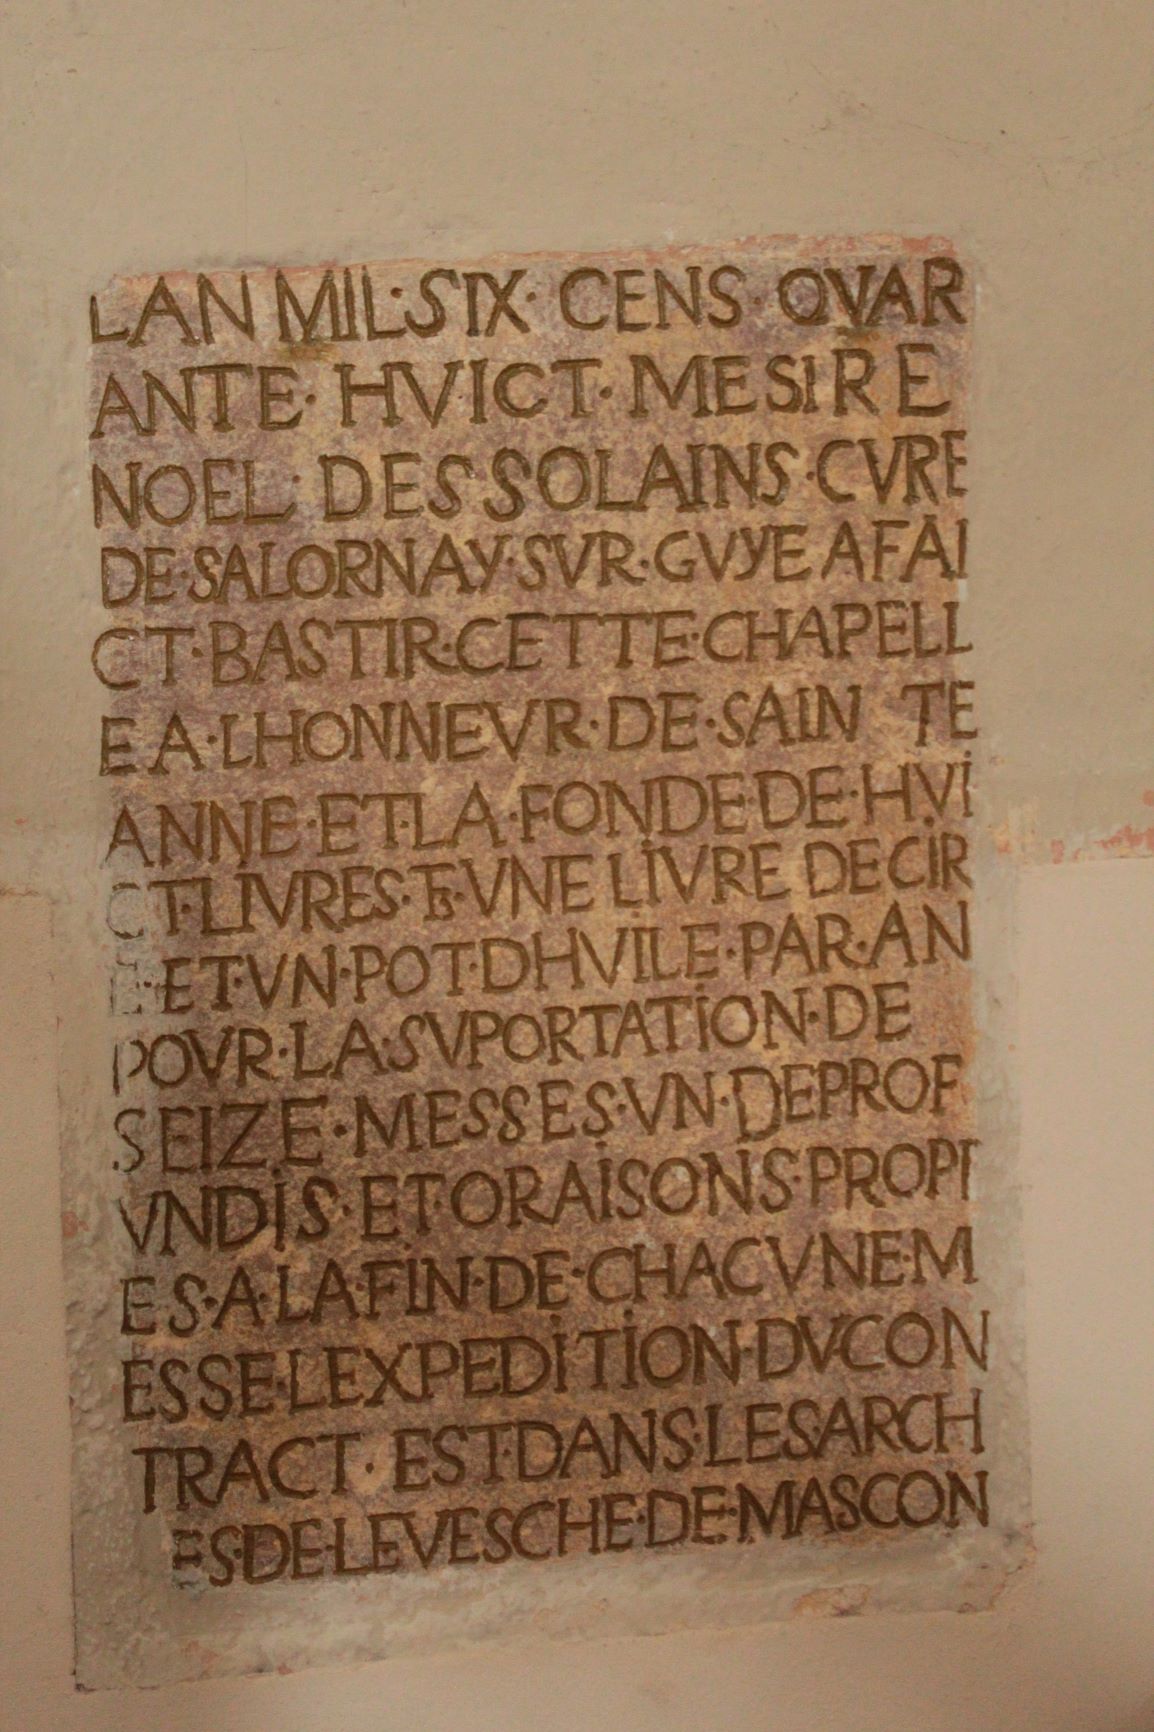 LAN MIL·SIX· CENS·QVAR
ANTE·HVICT·MESIRE
NOEL·DES SOLAINS·CVRE
DE·SALORNAY·SVR·GVYE A FAI
CT·BASTIR·CETTE·CHAPELL
E A·LHONNEVR·DE·SAIN TE
ANNE·ET·LA·FONDE·DE·HVI
CT·LIVRES··VNE LIVRE DE CIR
E·ET·VN·POT·DHVILE·PAR·AN
POVR·LA·SVPORTATION·DE
SEIZE·MESSES·VN·DEPROF
VNDIS·ET·ORAISONS·PROPI
ES·A·LA·FIN·DE·CHACVNE·M
ESSE·LEXPEDITION·DV·CON
TRACT·EST·DANS·LES·ARCH
ES·DE·LEVESCHE·DE·MASCON